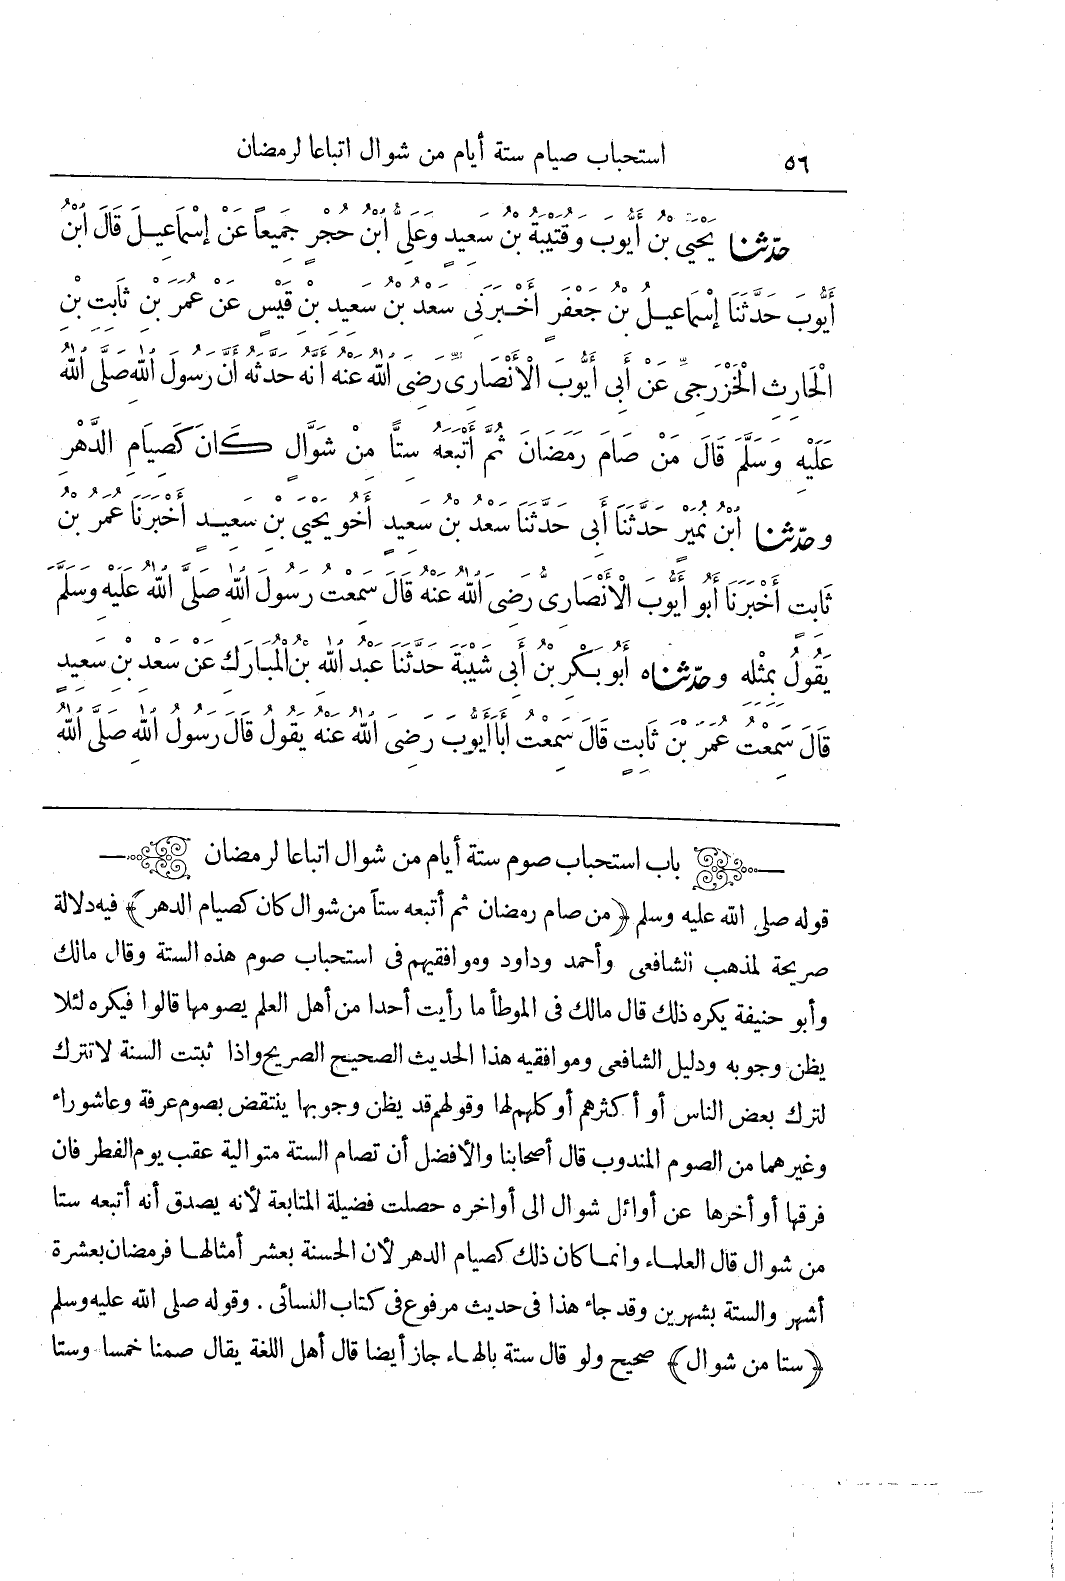 ٥٦ استحباب صيام ستة أيام من شوال اتباعا لرمضان
حدّثنا يَحْيَى بْنُ أَيُّوبَ وَقُتَيْبَةُ بْنُ سَعِيدٍ وَعَلِىُّ ابْنُ حُجْرٍ جَمِيعًا عَنْ إِسْمَاعِيلَ قَالَ ابْنُ
أَيُّوبَ حَدَّثَنَا إِسْمَاعِيلُ بْنُ جَعْفَرٍ أَخْبَرَنِى سَعْدُ بْنُ سَعِيدِ بْنِ قَيْسٍ عَنْ عُمَرَ بْنِ ثَابِتِ بْنِ
الْحَارِثِ الْخَزْرَجِىِّ عَنْ أَبِى أَيُّوبَ الْأَنْصَارِىِّ رَضِىَ اللهُ عَنْهُ أَنَّهُ حَدَّثَهُ أَنَّ رَسُولَ اللهِ صَلَّى اللهُ
عَلَيْهِ وَسَلَّمَ قَالَ مَنْ صَامَ رَمَضَانَ ثُمَّ أَتْبَعَهُ سِتًّا مِنْ شَوَّالٍ كَانَ كَصِيَامِ الدَّهْرِ
وحدّثنا ابْنُ نُمَيْرٍ حَدَّثَنَا أَبِى حَدَّثَنَا سَعْدُ بْنُ سَعِيدٍ أَخُو يَحْيَى بْنِ سَعِيدٍ أَخْبَرَنَا عُمَرُ بْنُ
ثَابِتٍ أَخْبَرَنَا أَبُو أَيُّوبَ الْأَنْصَارِىُّ رَضِىَ اللهُ عَنْهُ قَالَ سَمِعْتُ رَسُولَ اللهِ صَلَّى اللهُ عَلَيْهِ وَسَلَّمَ
يَقُولُ بِمِثْلِهِ وحدّثناه أَبُو بَكْرِ بْنُ أَبِى شَيْبَةَ حَدَّثَنَا عَبْدُ اللهِ بْنُ الْمُبَارَكِ عَنْ سَعْدِ بْنِ سَعِيدٍ
قَالَ سَمِعْتُ عُمَرَ بْنَ ثَابِتٍ قَالَ سَمِعْتُ أَبَا أَيُّوبَ رَضِىَ اللهُ عَنْهُ يَقُولُ قَالَ رَسُولُ اللهِ صَلَّى اللهُ
باب استحباب صوم ستة أيام من شوال اتباعا لرمضان
قوله صلى الله عليه وسلم ﴿من صام رمضان ثم أتبعه ستاً من شوال كان كصيام الدهر﴾ فيه دلالة
صريحة لمذهب الشافعى وأحمد وداود وموافقيهم فى استحباب صوم هذه الستة وقال مالك
وأبو حنيفة يكره ذلك قال مالك فى الموطأ ما رأيت أحدا من أهل العلم يصومها قالوا فيكره لئلا
يظن وجوبه ودليل الشافعى وموافقيه هذا الحديث الصحيح الصريح واذا ثبتت السنة لا تترك
لترك بعض الناس أو أكثرهم أو كلهم لها وقولهم قد يظن وجوبها ينتقض بصوم عرفة وعاشوراء
وغيرهما من الصوم المندوب قال أصحابنا والأفضل أن تصام الستة متوالية عقب يوم الفطر فان
فرقها أو أخرها عن أوائل شوال الى أواخره حصلت فضيلة المتابعة لأنه يصدق أنه أتبعه ستا
من شوال قال العلماء وانما كان ذلك كصيام الدهر لأن الحسنة بعشر أمثالها فرمضان بعشرة
أشهر والستة بشهرين وقد جاء هذا فى حديث مرفوع فى كتاب النسائى . وقوله صلى الله عليه وسلم
﴿ستا من شوال﴾ صحيح ولو قال ستة بالهاء جاز أيضا قال أهل اللغة يقال صمنا خمسا وستا